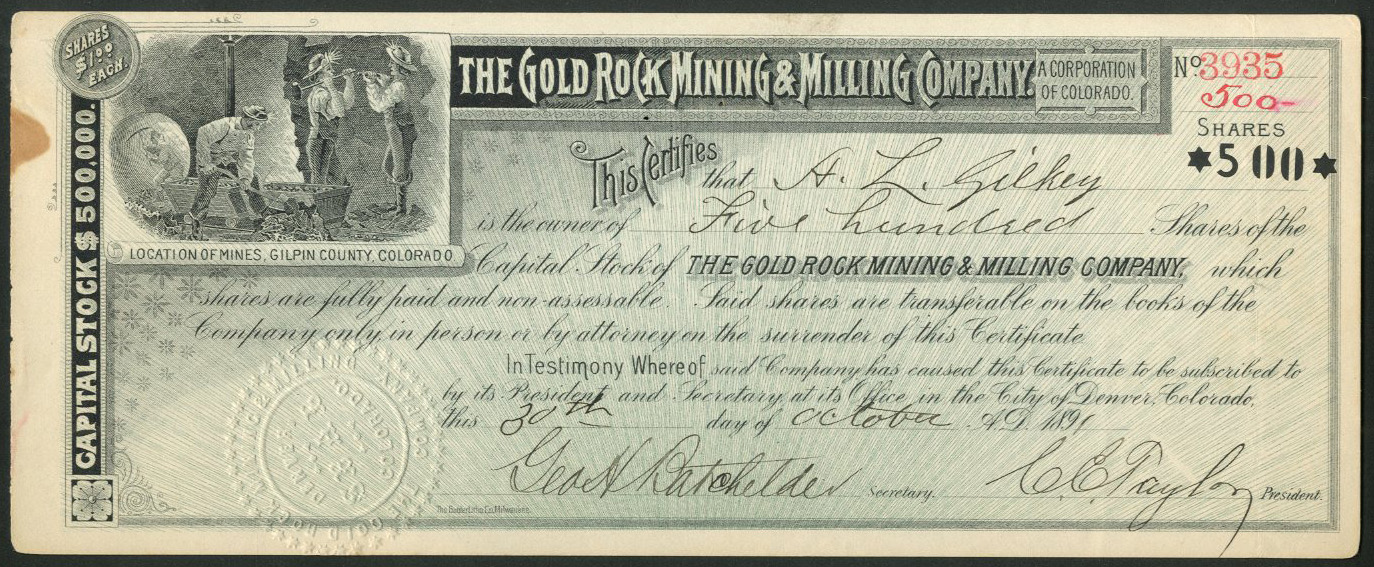 SHARES
$1.00
EACH.
THE GOLD ROCK MINING & MILLING COMPANY.
A CORPORATION
OF COLORADO.
No. 3935
500-
SHARES
★500★
CAPITAL STOCK $500,000.
LOCATION OF MINES, GILPIN COUNTY, COLORADO
This Certifies that A. L. Gilkey
is the owner of Five hundred Shares of the
Capital Stock of THE GOLD ROCK MINING & MILLING COMPANY, which
shares are fully paid and non-assessable. Said shares are transferable on the books of the
Company only, in person or by attorney on the surrender of this Certificate
In Testimony Whereof said Company has caused this Certificate to be subscribed to
by its President and Secretary, at its Office, in the City of Denver, Colorado,
this 30th day of October A.D. 1891
Geo H Batchelder Secretary.
C. E. Taylor President.